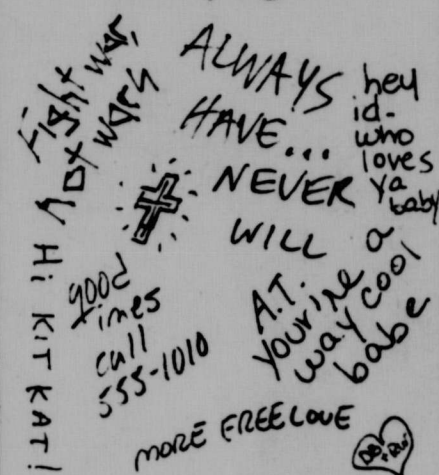 Fight war,
not wars
ALWAYS
HAVE...
NEVER
WILL
hey
id-
who
loves
ya
baby
Hi KIT KAT!
good
times
call
555-1010
A.T.
your're a
way cool
babe
MORE FREE LOVE